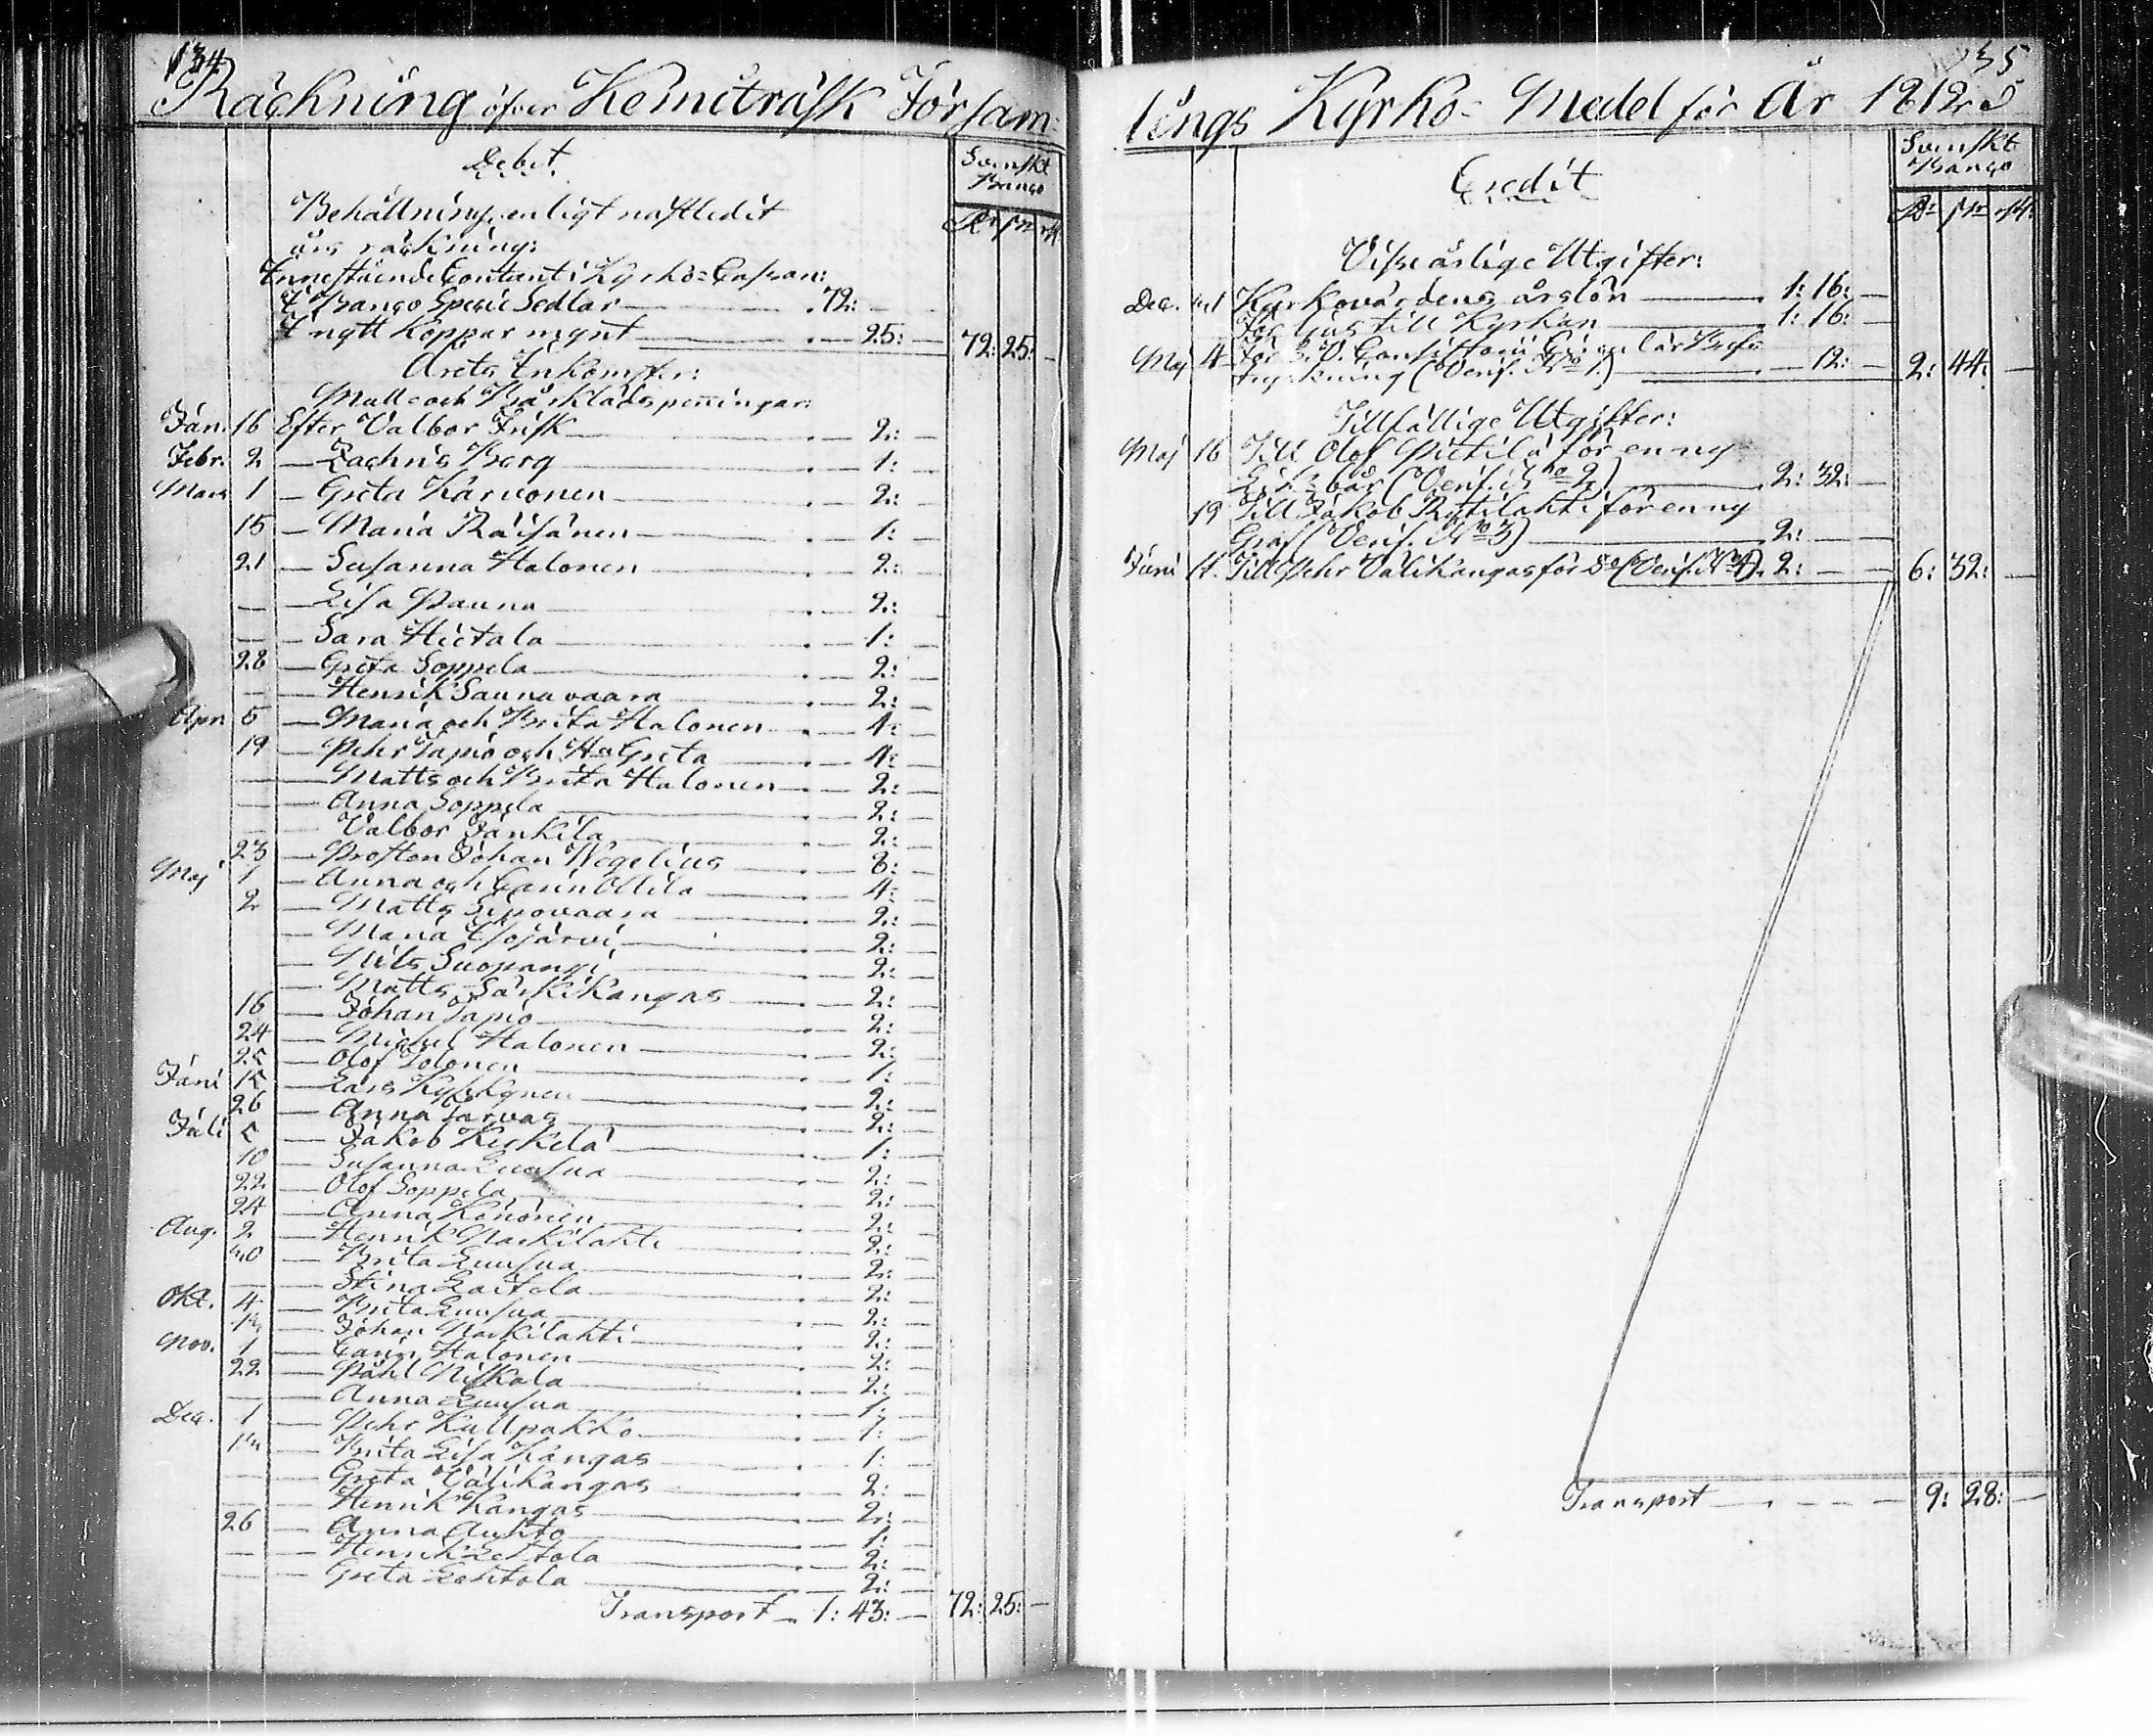 134
Räckning öfver Kemiträsk Församl:
Debet
Svenskt Banco
Behållning, enligt nästledit
Rr ß rst
års räckning:
Innestående Contant i Kyrko-Cassan:
I Banco Specie Sedlar — 72: —
I nytt Koppar mynt — 25: — 72: 25: —
Årets Inkomster:
Mull- och Bårklädspenningar:
Jan. 16 Efter Valbor Frisk — 2: —
Febr. 2 — Zachris Berg — 1: —
Mars 1 — Greta Karvonen — 2: —
15 — Maria Räisänen — 1: —
21 — Susanna Halonen — 2: —
— — Lisa Pauna — 2: —
— — Sara Hietala — 1: —
28 — Greta Soppela — 2: —
— — Henrik Saunavaara — 2: —
Apr. 5 — Maria och Brita Halonen — 4: —
19 — Pehr Tapio och H. Greta — 4: —
— — Matts och Brita Halonen — 2: —
— — Anna Soppela — 2: —
— Valbor Jankila — 2: —
23 — Prosten Johan Wegelius — 8: —
Maj 1 — Anna och Carin Ollila — 4: —
2 — Matts Lepovaara — 2: —
— Maria Isojärvi — 2: —
— Nils Suopangi — 2: —
— Matts Särkikangas — 2: —
16 — Johan Tapio — 2: —
24 — Michel Halonen — 2: —
25 — Olof Tolonen — 1: —
Juni 15 — Lars Kykkynen — 2: —
26 — Anna Jarvas — 2: —
Juli 5 — Jakob Kerkelä — 1: —
10 — Susanna Luusua — 2: —
22 — Olof Soppela — 2: —
24 — Anna Kononen — 2: —
Aug. 2 — Henrik Narkilahti — 2: —
30 — Brita Luusua — 2: —
— — Stina Laitola — 2: —
Okt. 4 — Brita Luusua — 2: —
— Johan Narkilahti — 2: —
Nov. 1 — Carin Halonen — 2: —
22 — Påhl Niskala — 2: —
— — Anna Luusua — 1: —
Dec. 1 — Pehr Kullpakko — 1: —
13 — Brita Lisa Kangas — 1: —
— — Greta Välikangas — 2: —
— — Henrik Kangas — 2: —
26 — Anna Auhto — 1: —
— — Henrik Lehtola — 2: —
— — Greta Lehtola — 2: —
Transport — 1: 43: — 72: 25: —
135
lings Kyrko-Medel för År 1812
Credit
Svenskt Banco
Rr ß rst
Visse årlige Utgifter:
Dec. 31 Kyrkovärdens årslön — 1: 16: —
För ljus till Kyrkan — 1: 16: —
Maj 4 För Consistorii Circulär Brefs
tryckning (Verif. No 1.) — 12: — 2: 44: —
Tillfällige Utgifter:
Maj 16 Till Olof Pietilä för en ny
Likbår (Verif. No 2) — 2: 32: —
19 Till Jakob Rytilahti för en ny
Graf (Verif. No 3) — 2: —
Juni 14. Till Pehr Välikangas för do (Verif. No 4). 2: — — 6: 32: —
Transport — 9: 28: —